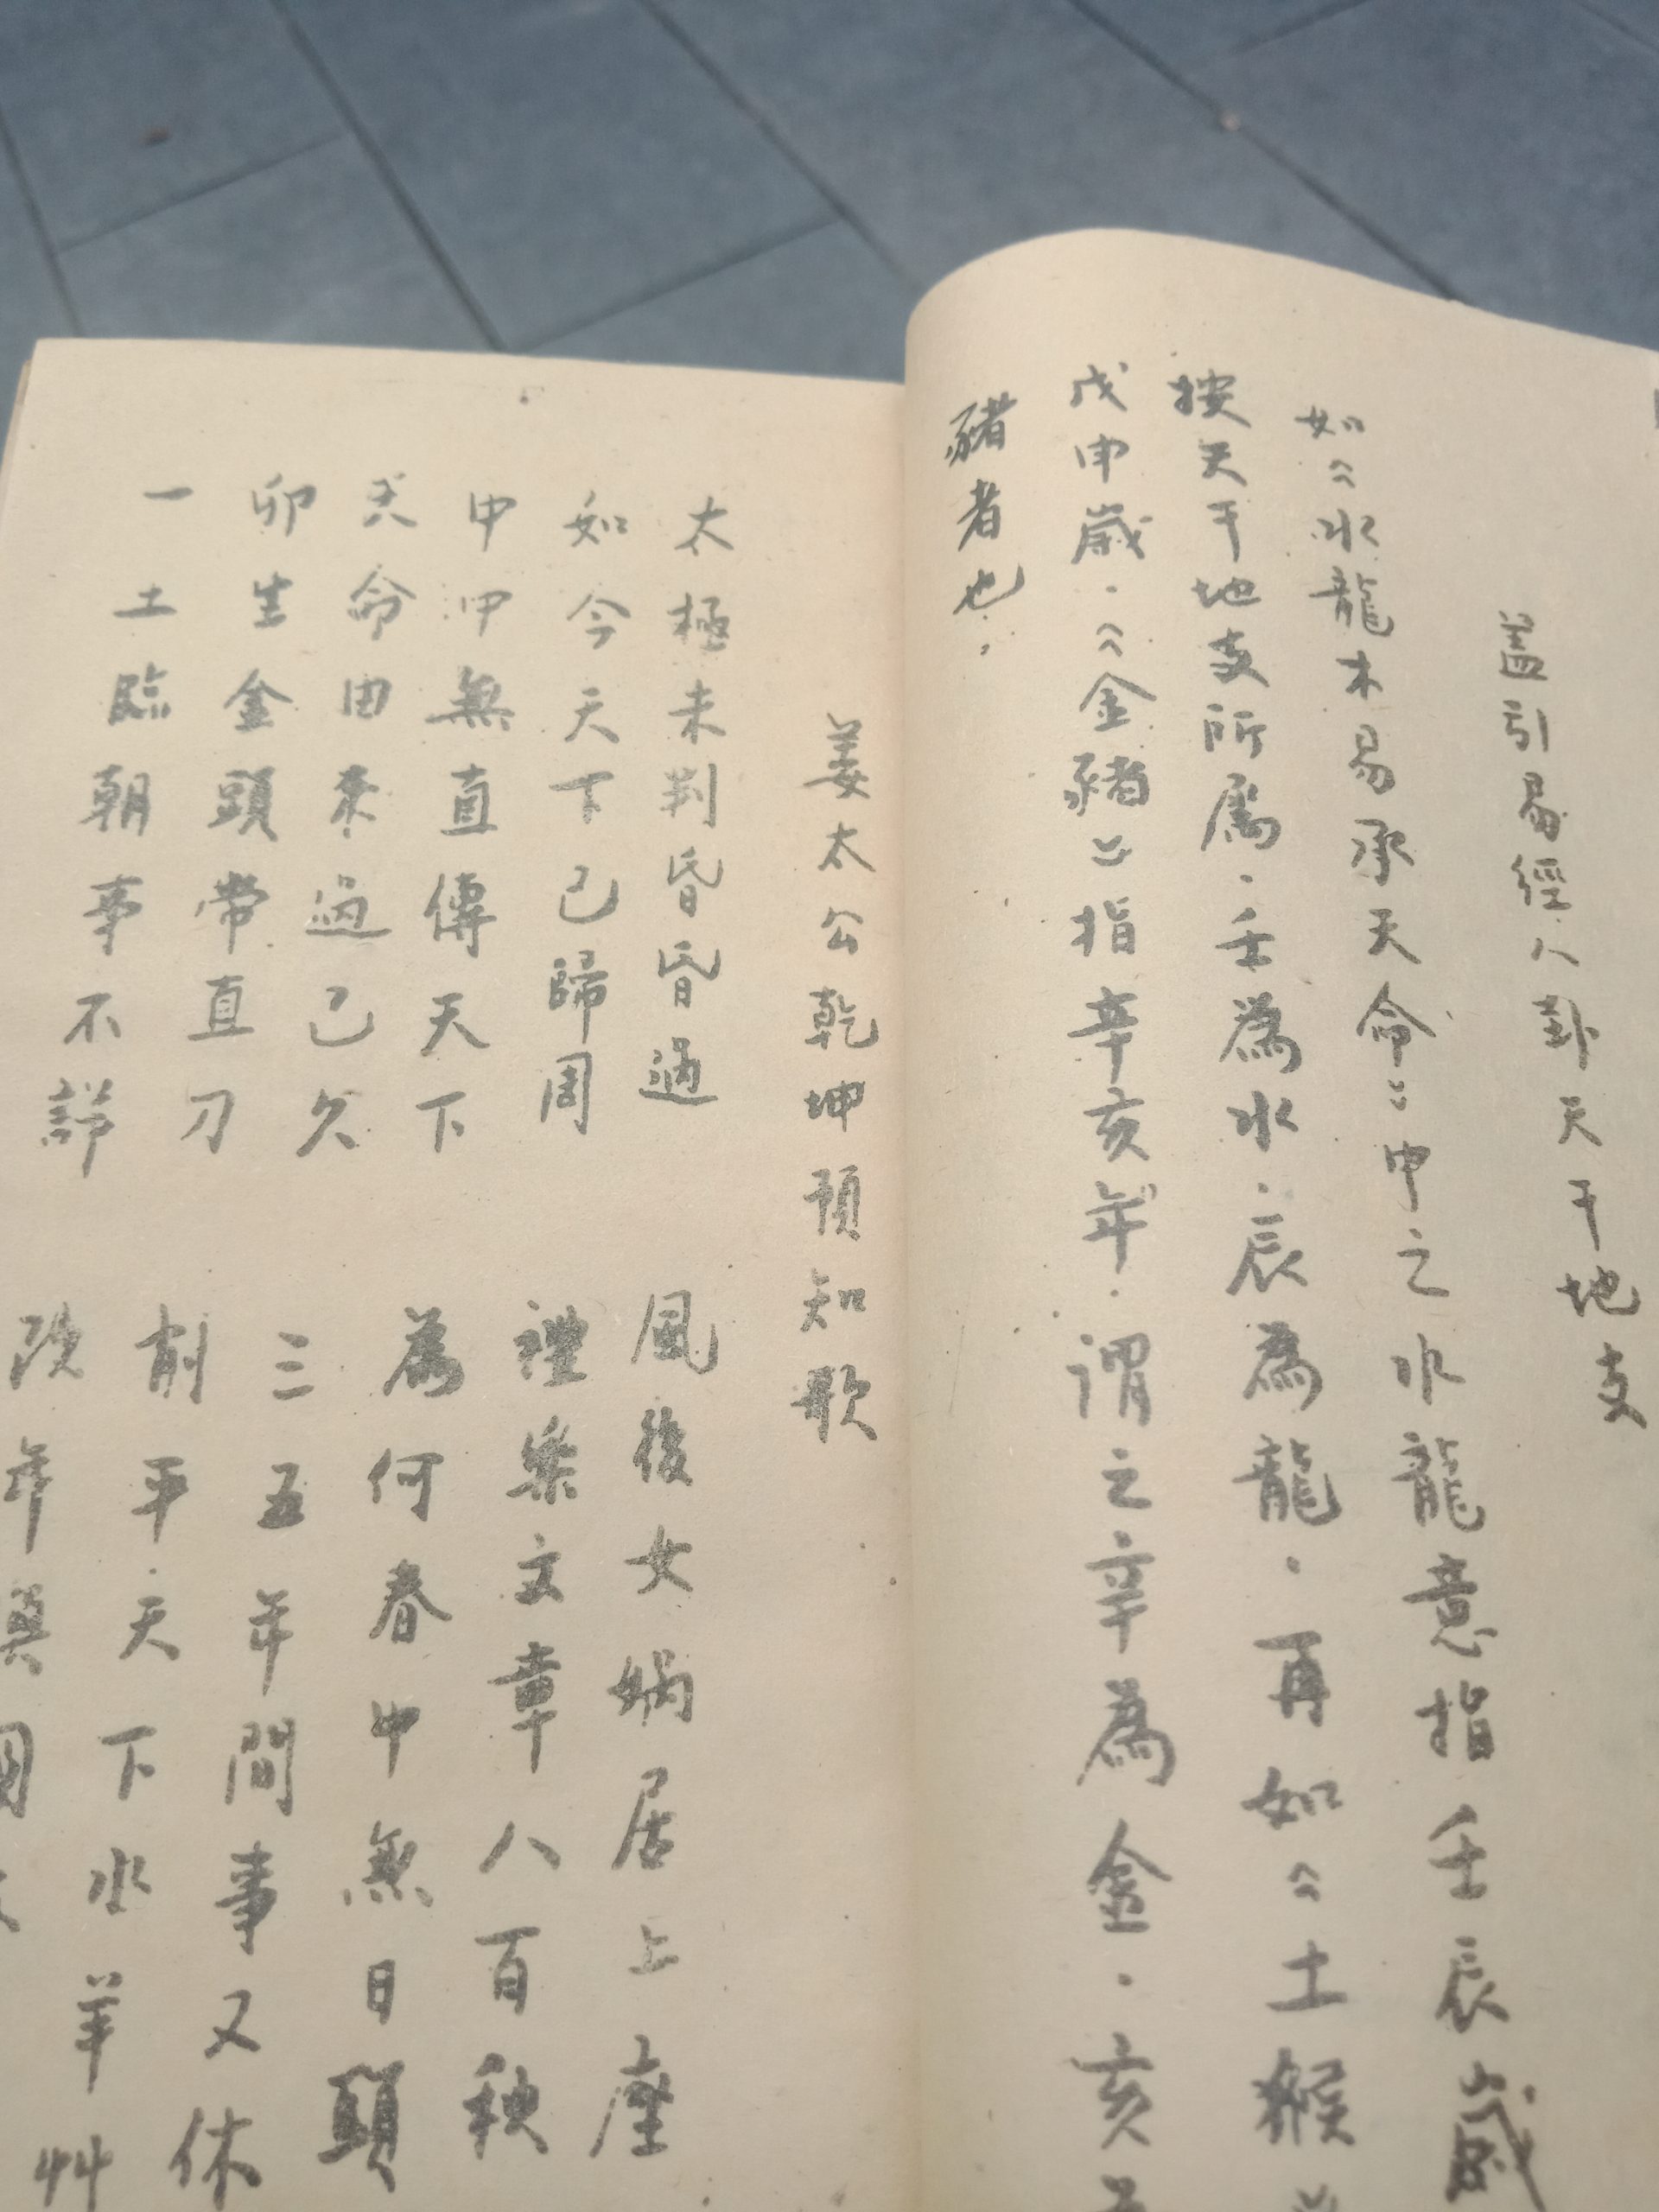 蓋引易經八卦天干地支
如《水龍木易承天命》中之水龍意指壬辰歲
按天干地支所屬．壬為水．辰為龍．再如《土猴
戊申歲．《金豬》指辛亥年．謂之辛為金．亥
豬者也．
姜太公乾坤預知歌
太極未判昏昏過 風後女媧居上座
如今天下已歸周 禮樂文章八百秧
中中無直傳天下 為何春中無日頭
天命由來過已久 三五年間事又休
卯生金頭帶直刀 削平天下水羊艸
一土臨朝事不詳 改年換國